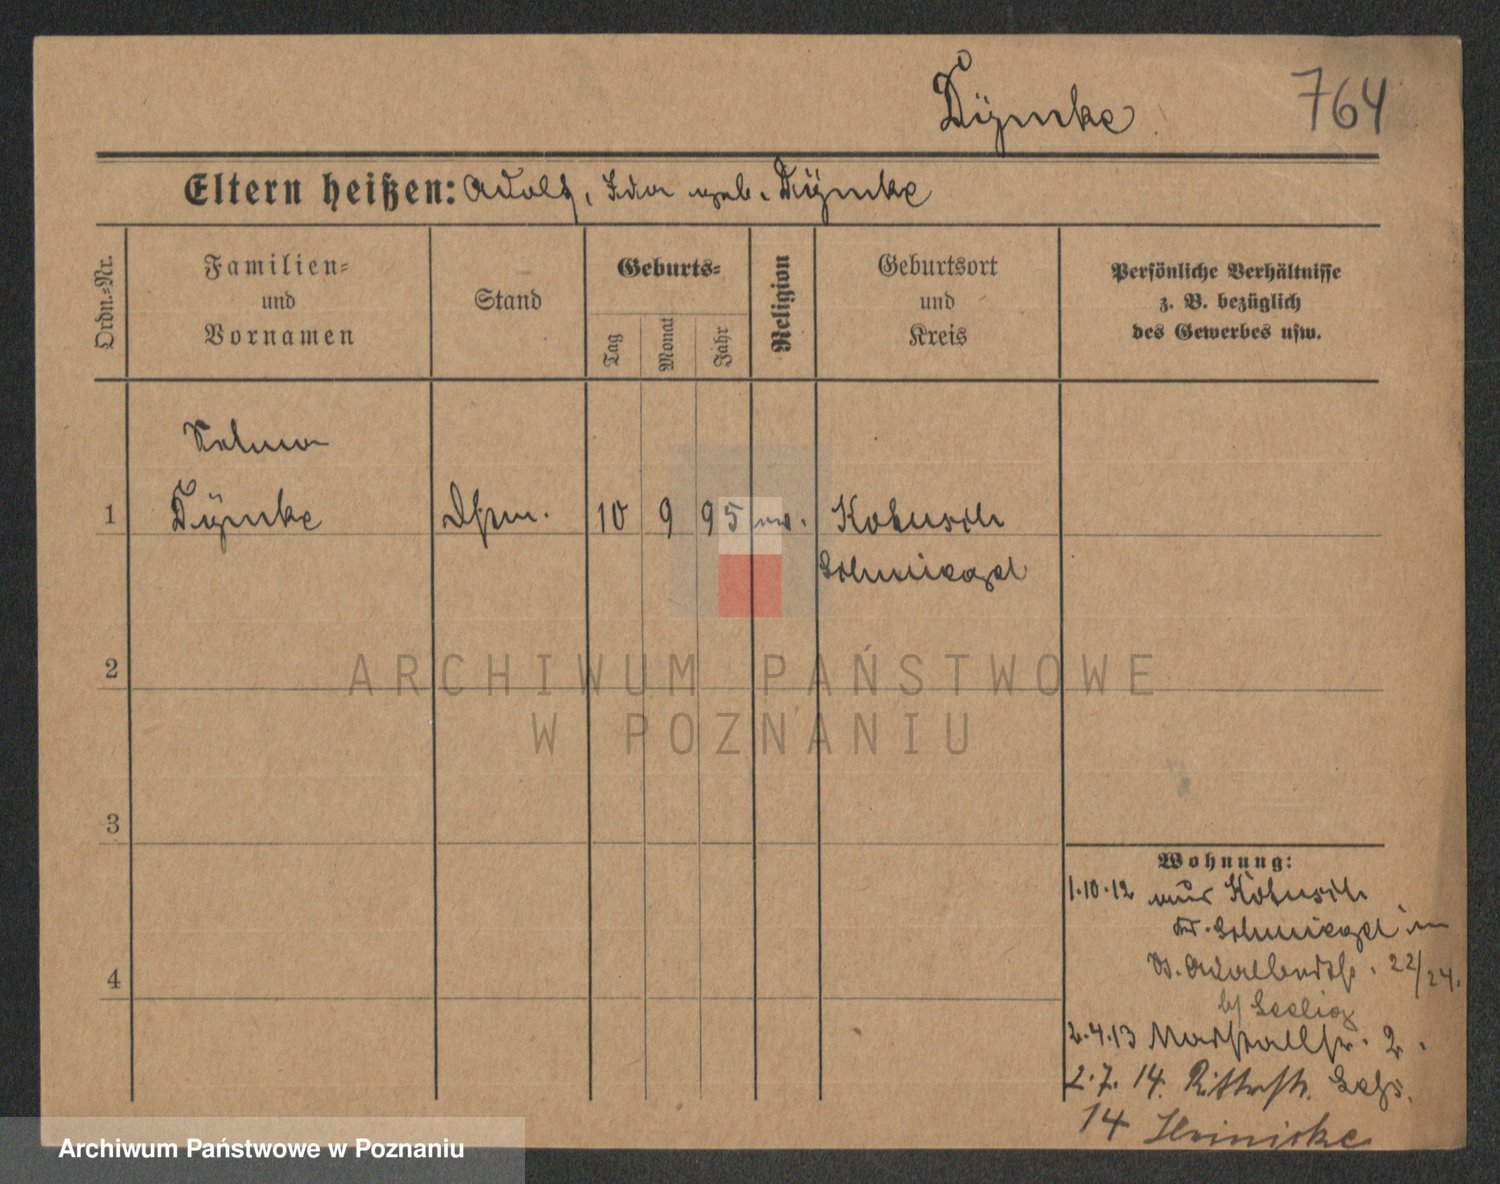 Dÿmke 764
Eltern heißen: Adolf, Ida geb. Dÿmke
Ordn.=Nr.
Familien=
und
Vornamen
Stand
Geburts=
Tag
Monat
Jahr
Religion
Geburtsort
und
Kreis
Persönliche Verhältnisse
z. B. bezüglich
des Gewerbes usw.
Selma
1 Dÿmke 10 9 95 Kotusch
Schmiegel
2
ARCHIWUM PAŃSTWOWE
W POZNANIU
3
4
Wohnung:
1.10.12 aus Kotusch
Kr. Schmiegel in
22/24.
b/ Seelig
2.4.13 Marstallstr. 2.
2.7.14. Ritterstr.
14
Archiwum Państwowe w Poznaniu